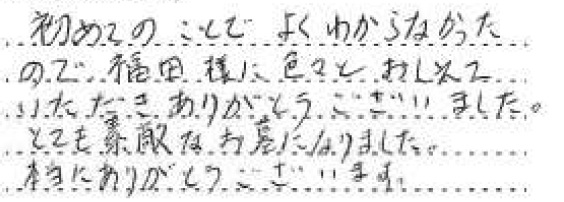 初めてのことでよくわからなかった
ので福田様に色々とおしえて
いただきありがとうございました。
とても素敵なお墓になりました。
本当にありがとうございます。